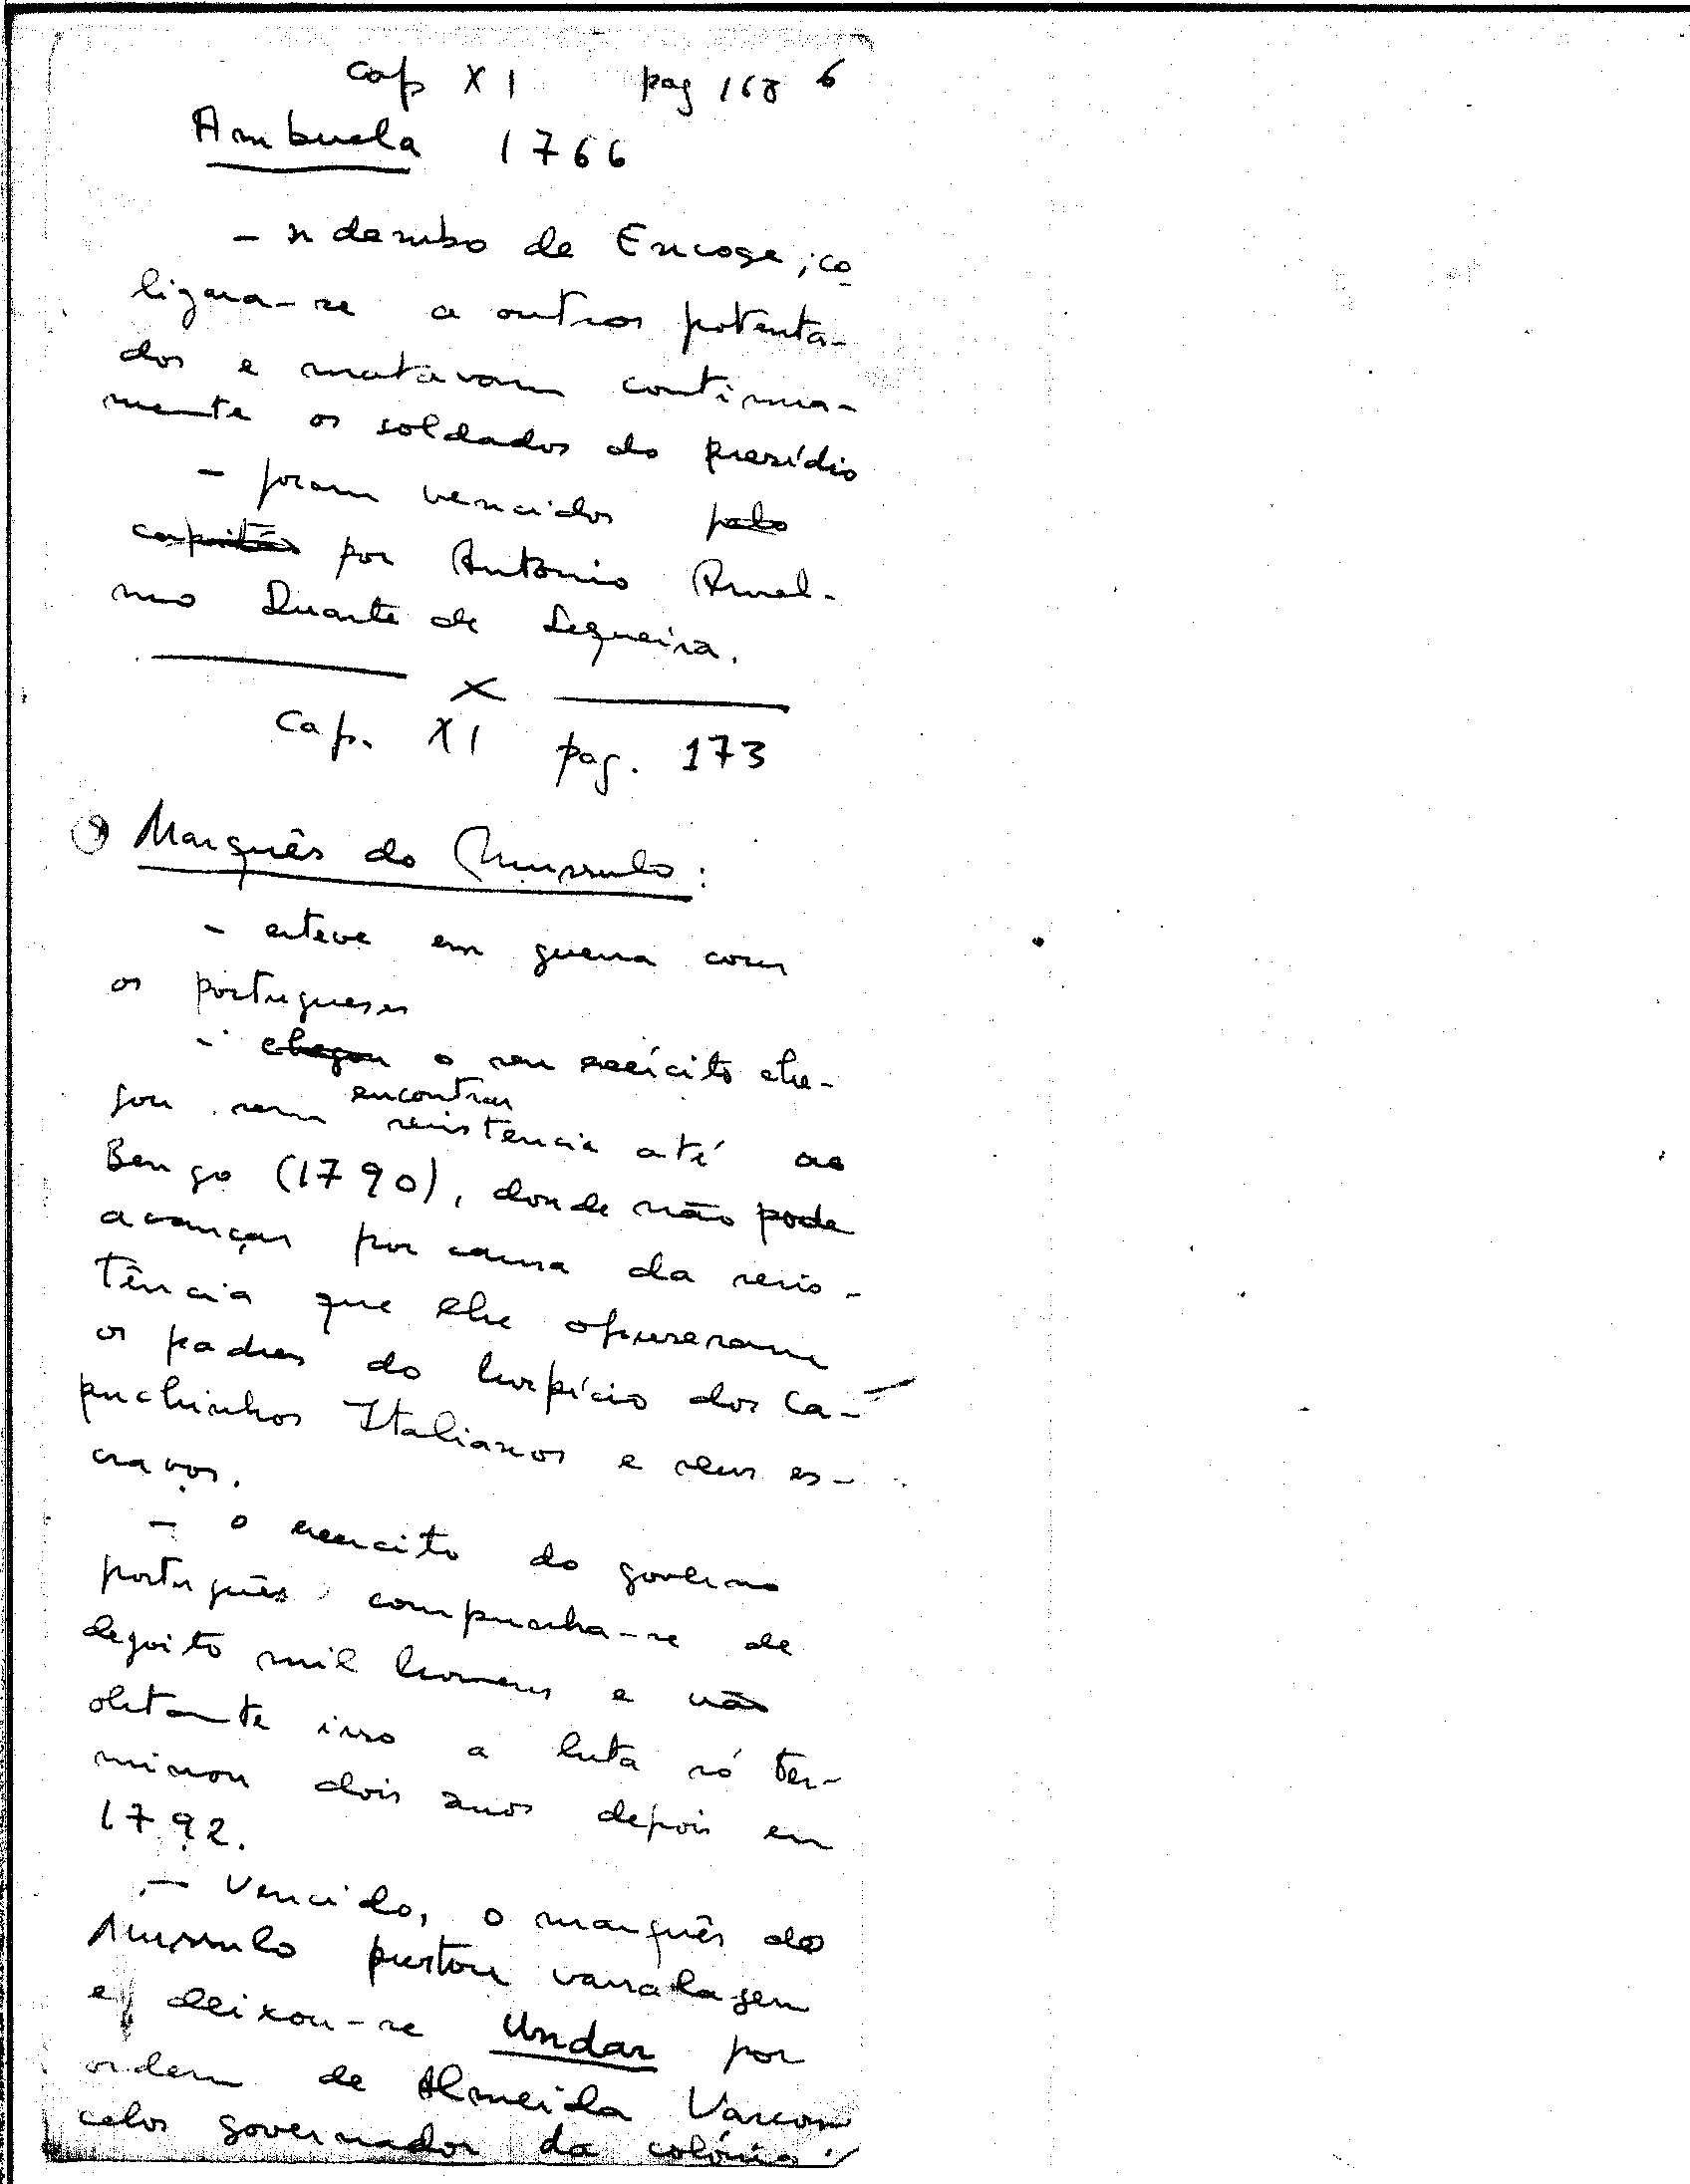 cap XI pag 168 6
Ambuela 1766
- n dembo de Encoge, co
ligara-se a outros potenta-
dos e matavam continua-
mente os soldados do presídio
- foram vencidos pelo
capitão por Antonio Ansel-
mo Duarte de Sequeira.
x
Cap. XI pag. 173
Marquês do Mussulo:
- esteve em guerra com
os portugueses
- chegou o seu exército che-
gou sem encontrar resistencia até ao
Bengo (1790), donde não pode
avançar por causa da resis-
tência que lhe opuseram
os padres do hospício dos Ca-
puchinhos Italianos e seus es-
cravos.
- o exercito do governo
português compunha-se de
dezoito mil homens e não
obstante isso a luta só ter-
minou dois anos depois em
1792.
- Vencido, o marquês do
Mussulo prestou vassalagem
e deixou-se Undar por
ordem de Almeida Vascon
celos governador da colónia.